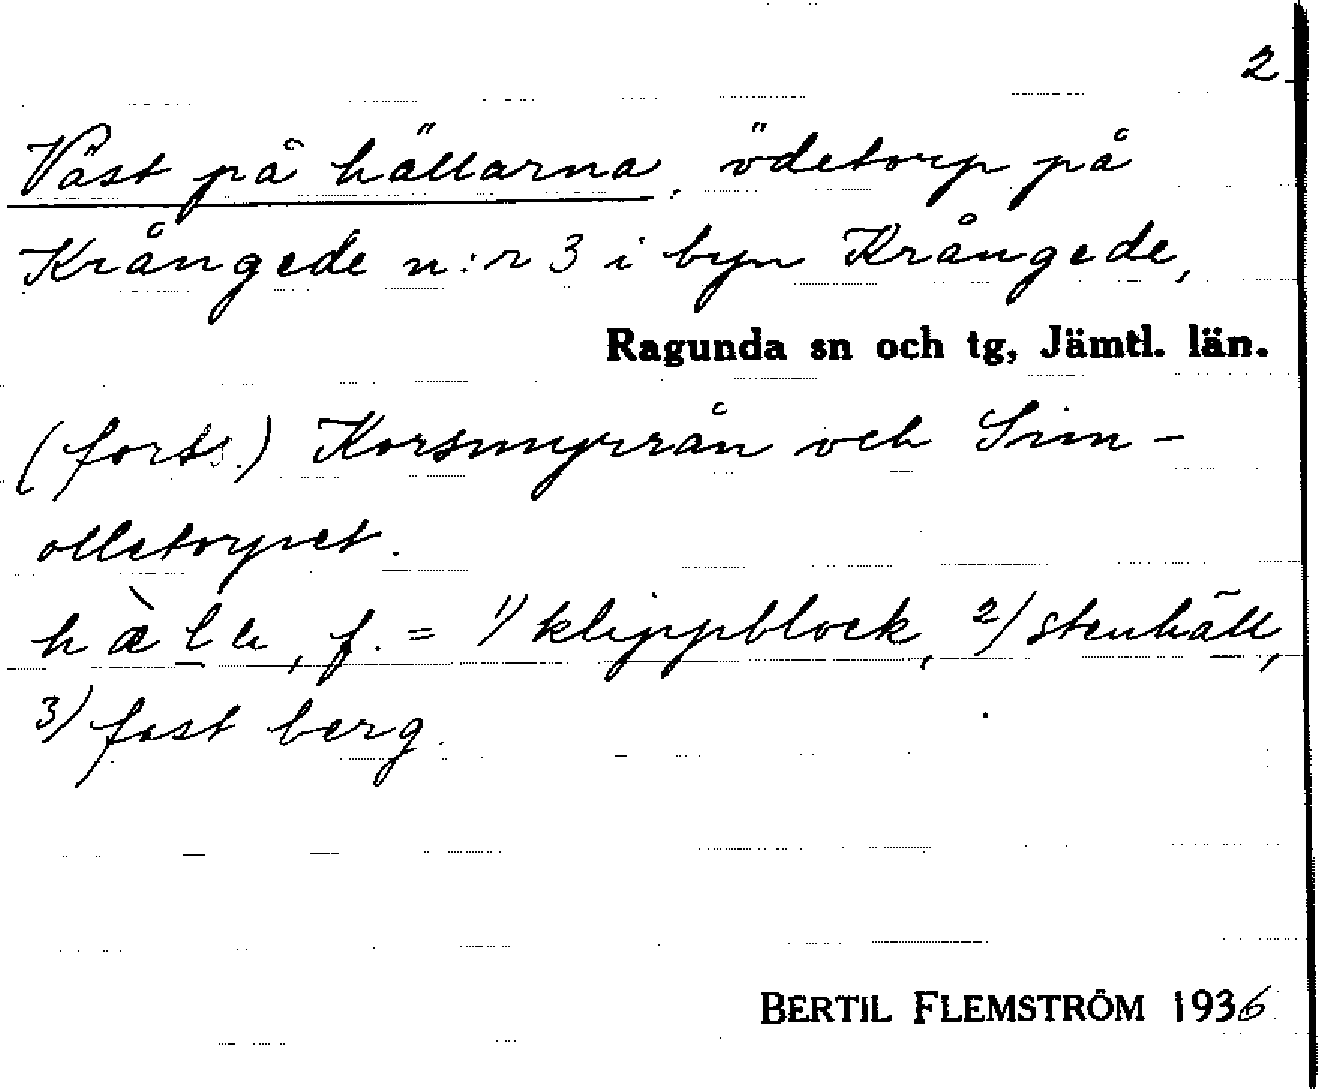 2
Väst på hällarna, ödetorp på
Krångede n:r 3 i byn Krångede,
Ragunda sn och tg, Jämtl. län.
(forts.) Korsmyrrån och Sim-
olletorpet.
f. = 1/ klippblock, 2/ stenhäll,
3/ fast berg.
BERTIL FLEMSTRÖM 1936